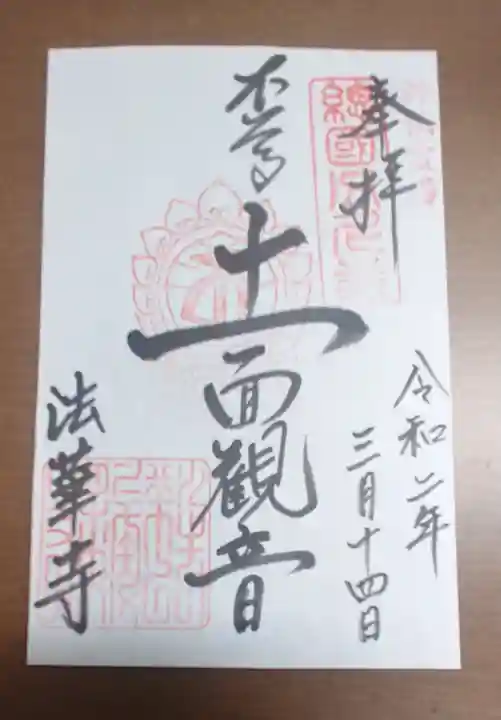 奉拝
令和二年
三月十四日
本尊
十一面観音
法華寺